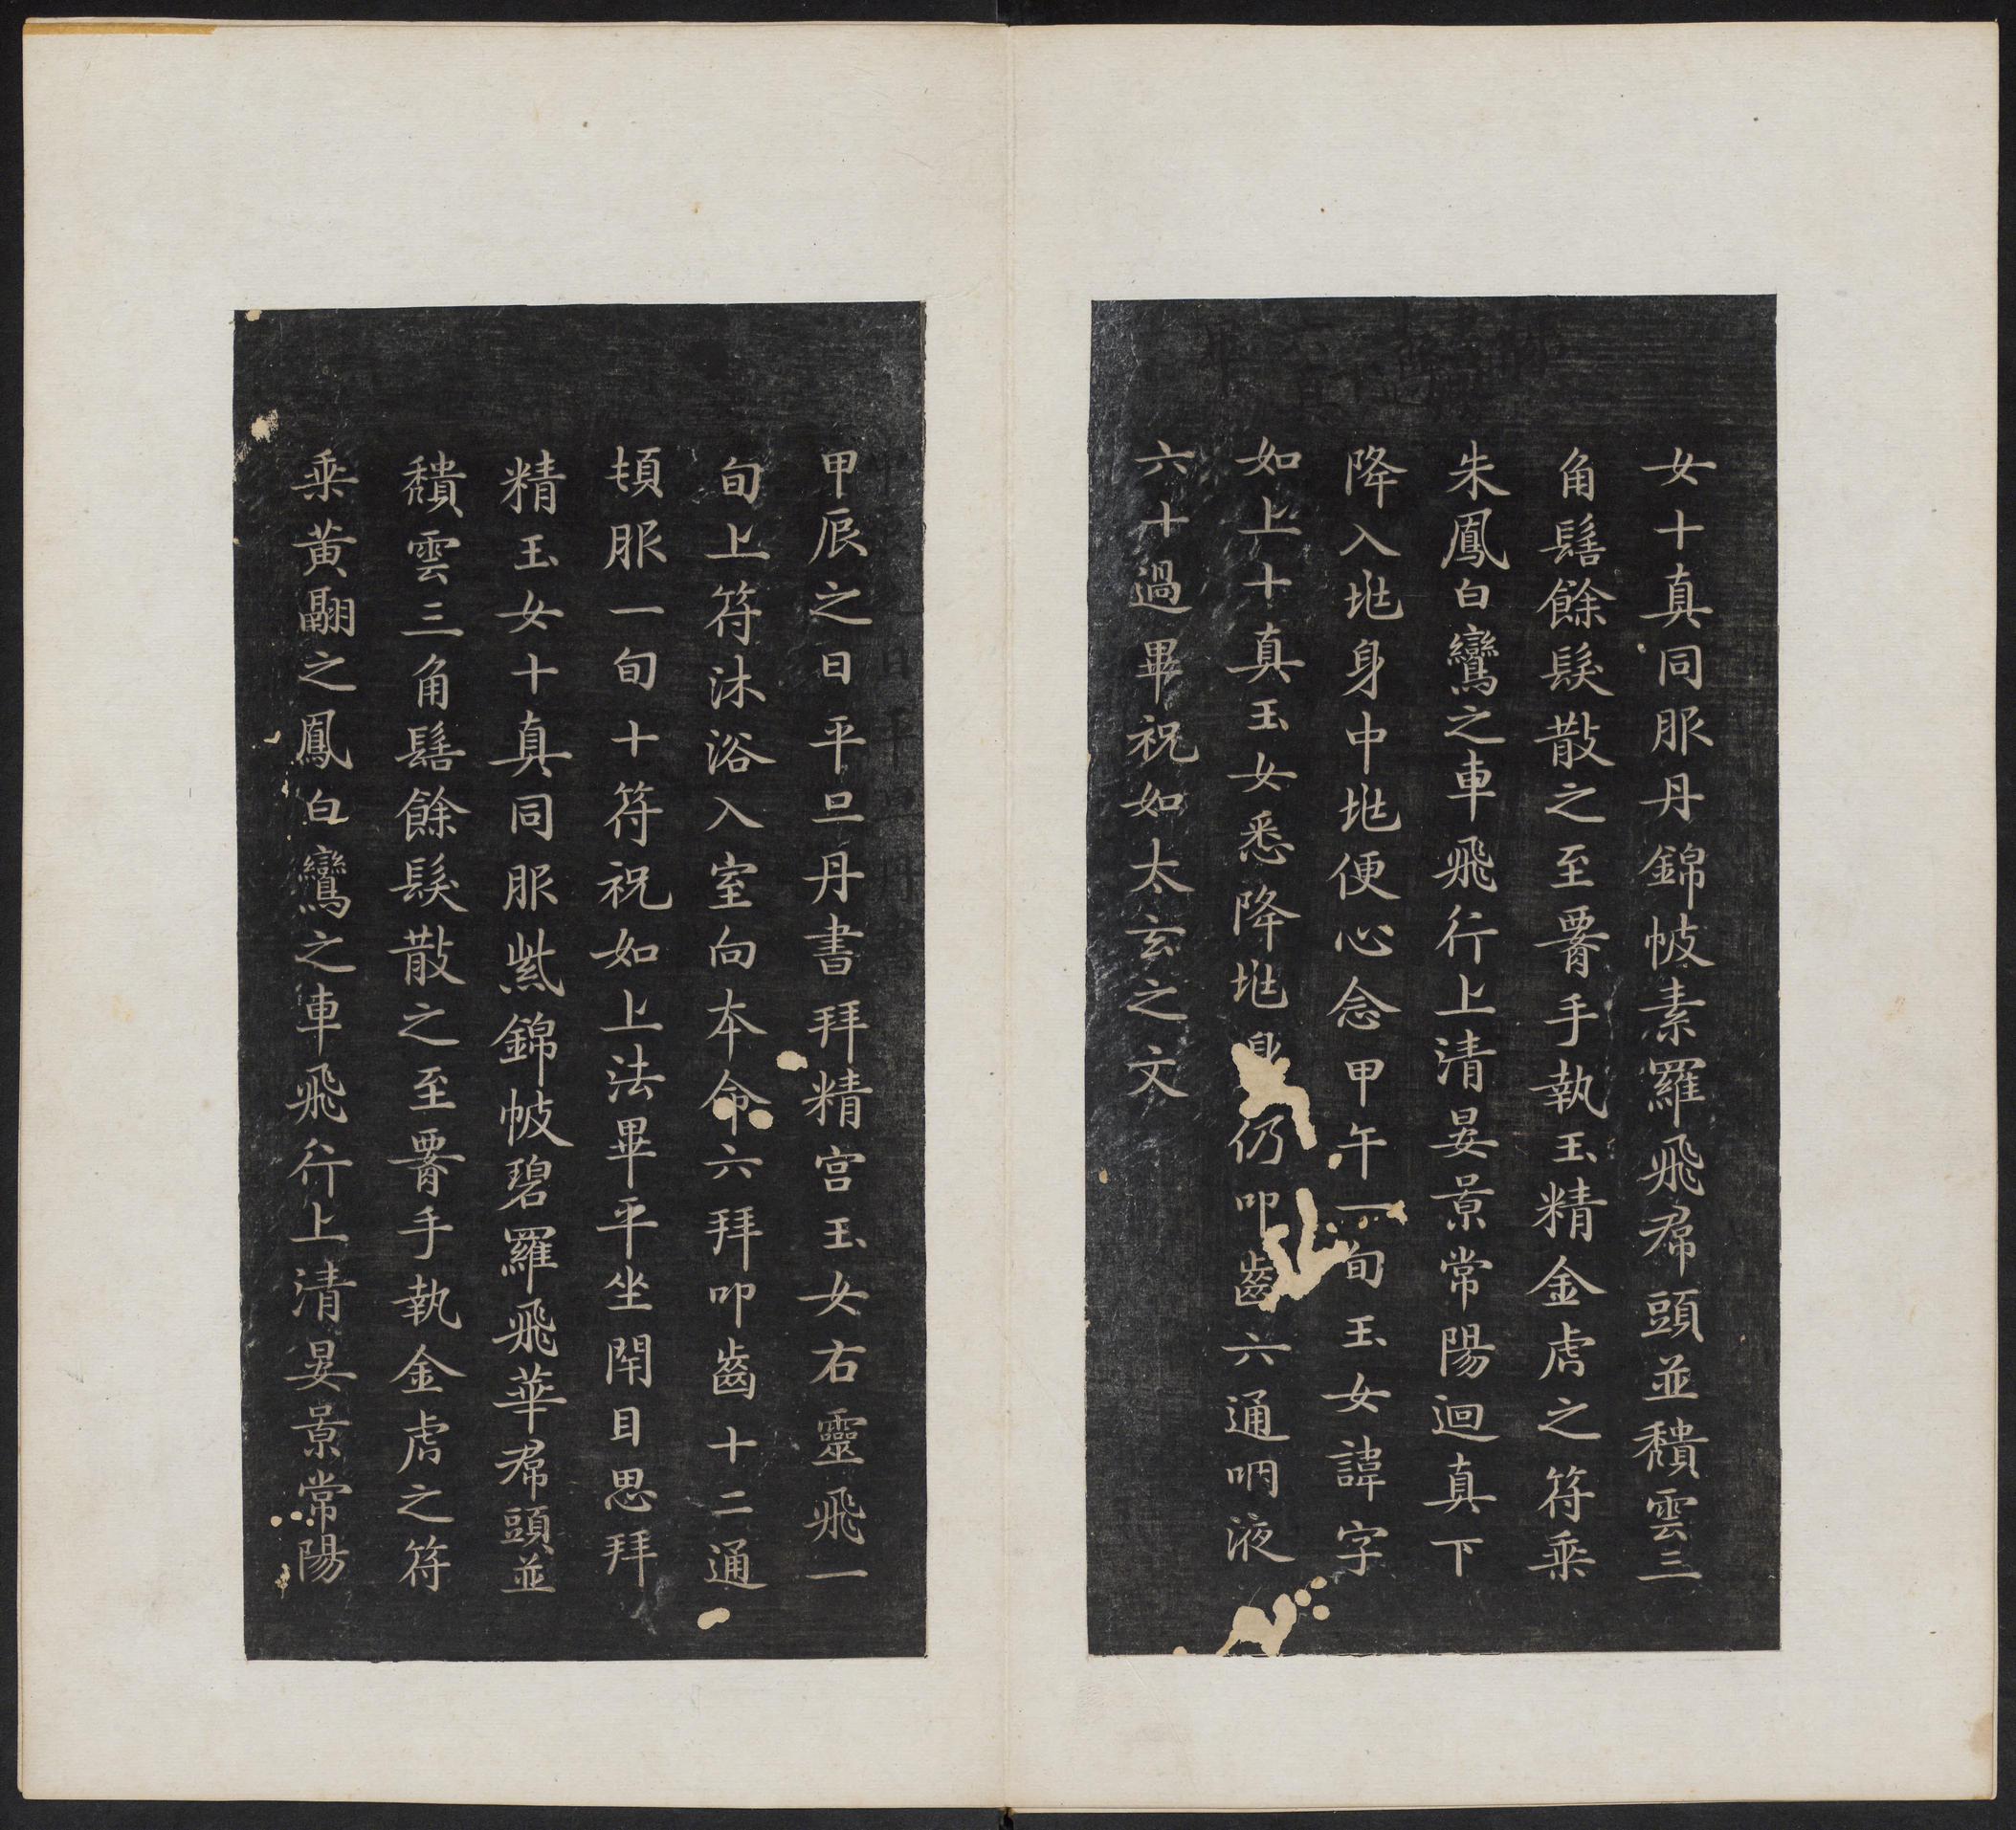 女十真同服丹錦帔素羅飛帬頭並穨雲三
角髻餘髮散之至腰手執玉精金虎之符乘
朱鳳白鸞之車飛行上清晏景常陽迴真下
降入兆身中兆便心念甲午一旬玉女諱字
如上十真玉女悉降兆身仍叩齒六通咽液
六十過畢祝如太玄之文
甲辰之日平旦丹書拜精宮玉女右靈飛一
旬上符沐浴入室向本命六拜叩齒十二通
頓服一旬十符祝如上法畢平坐閉目思拜
精玉女十真同服紫錦帔碧羅飛華帬頭並
穨雲三角髻餘髮散之至腰手執金虎之符
乘黃翮之鳳白鸞之車飛行上清晏景常陽